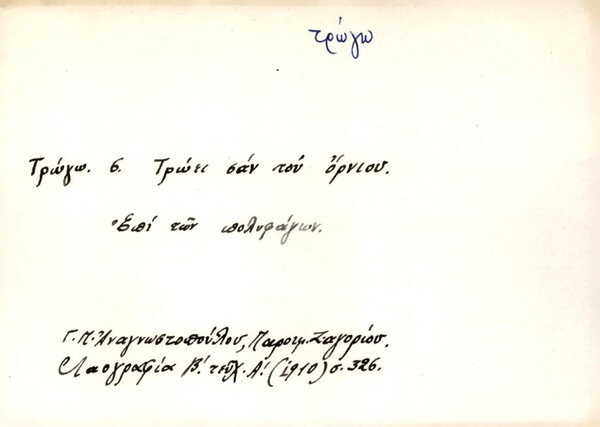 τρώγω
Τρώγω. 6. Τρώει σάν τού ὄρνιου.
Ἐπί τῶν πολυφάγων.
Γ. Π. Ἀναγνωστοπούλου, Παροιμ. Ζαγορίου.
Λαογραφία Β! τεῦχ. Α! (1910) σ. 326.